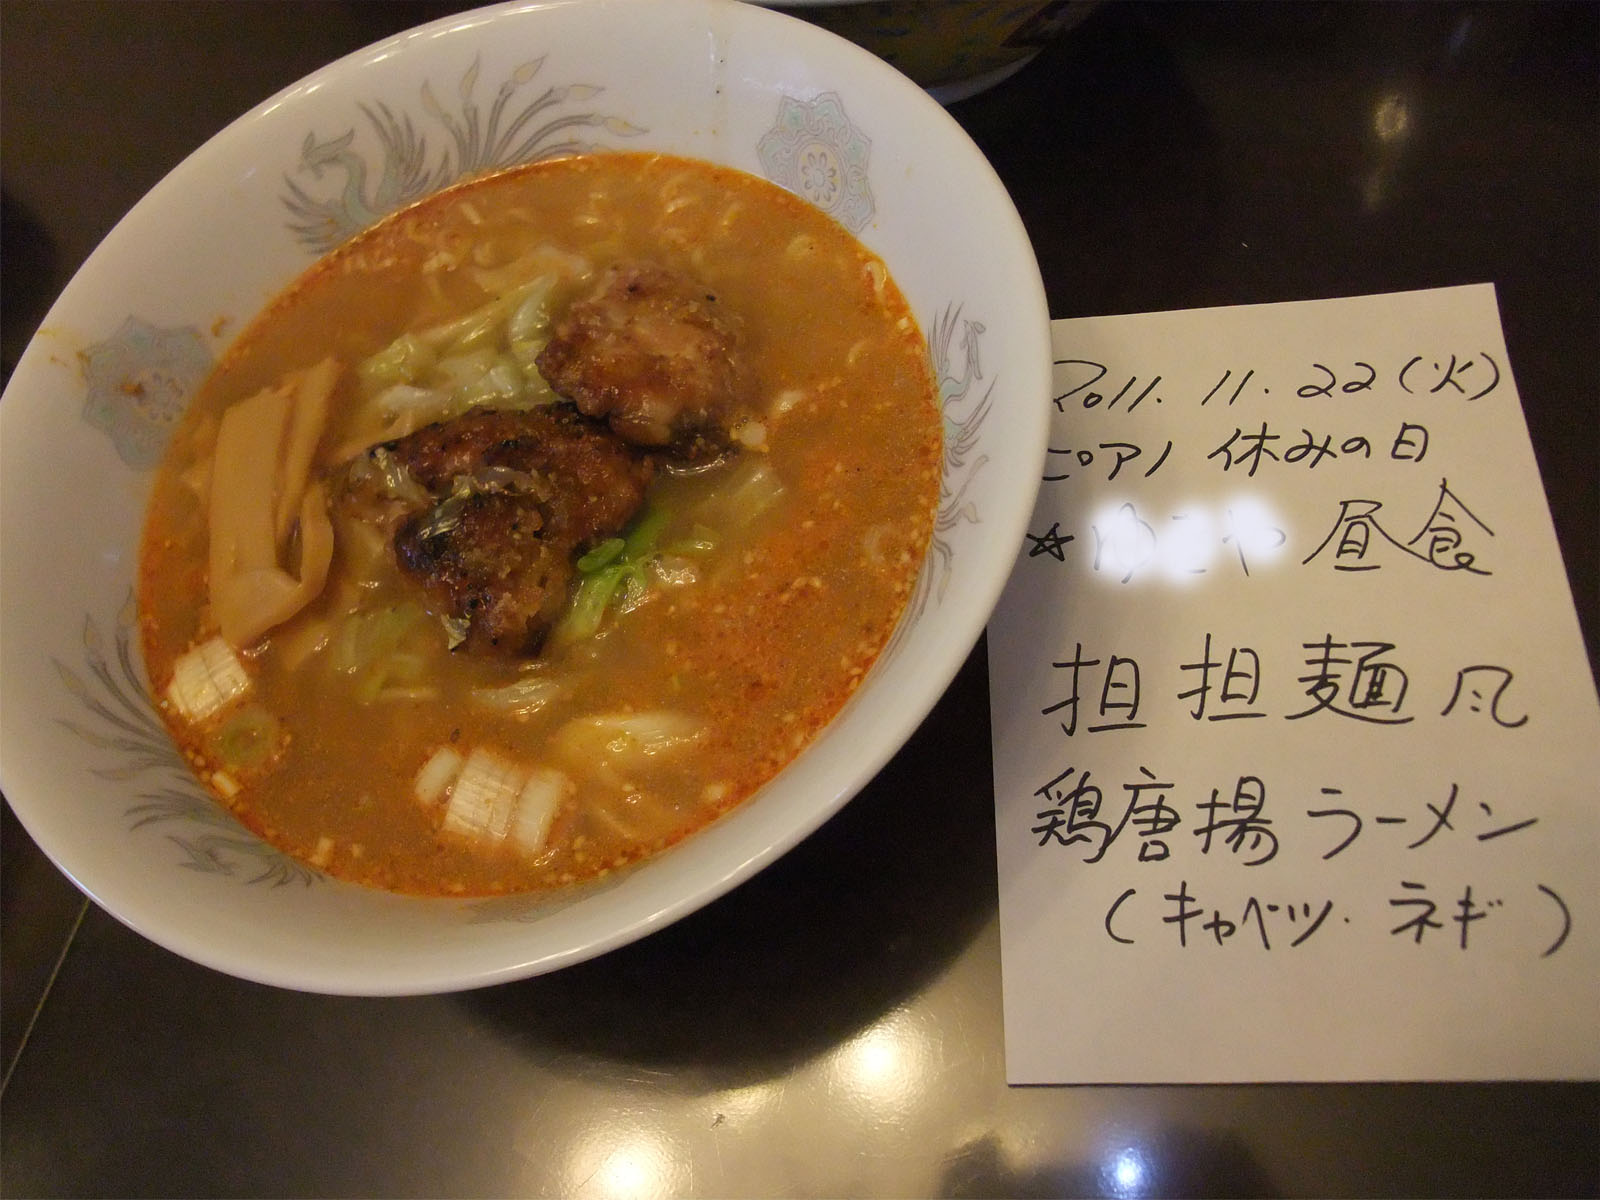 2011. 11. 22(火)
ピアノ 休みの日
☆ 昼食
担担麺風
鶏唐揚ラーメン
(キャベツ・ネギ)